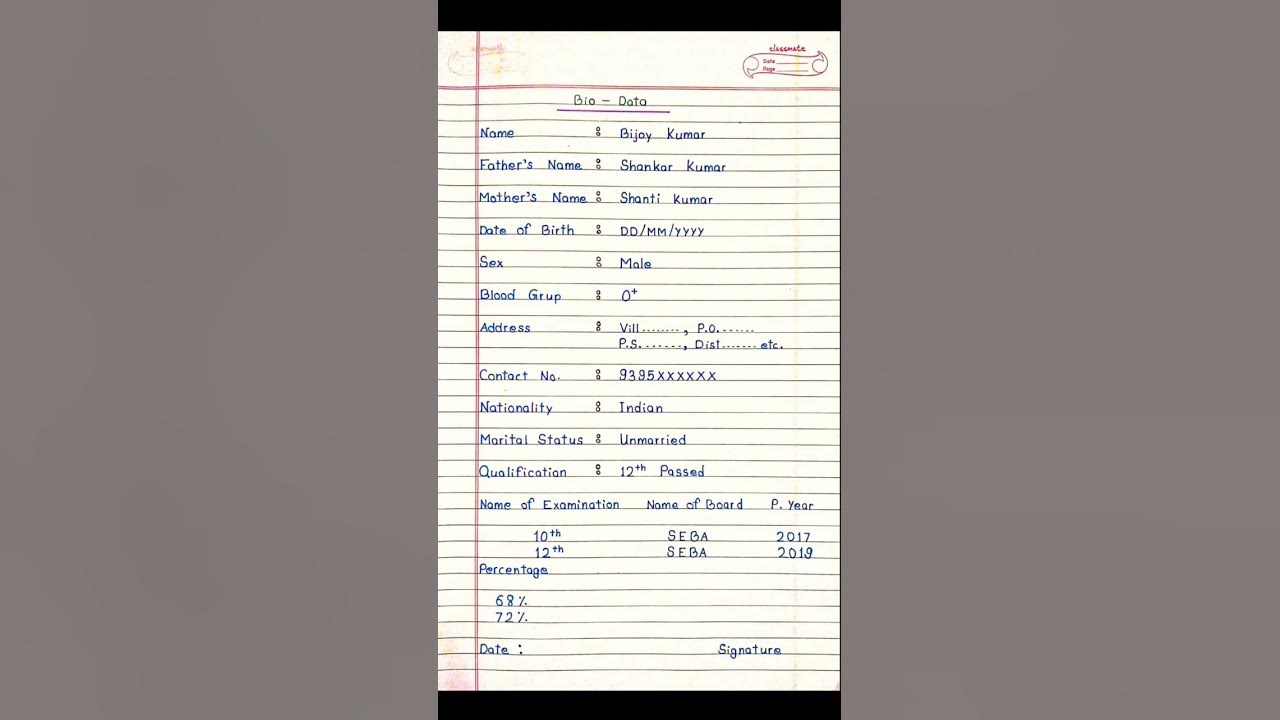 classmate
Date
Page
Bio - Data
Name : Bijoy Kumar
Father's Name : Shankar Kumar
Mother's Name : Shanti Kumar
Date of Birth : DD/MM/YYYY
Sex : Male
Blood Grup : O+
Address : Vill........, P.O.......
P.S......., Dist....... etc.
Contact No. : 9395XXXXXX
Nationality : Indian
Marital Status : Unmarried
Qualification : 12th Passed
Name of Examination Name of Board P. Year
10th SEBA 2017
12th SEBA 2019
Percentage
68%
72%
Date : Signature